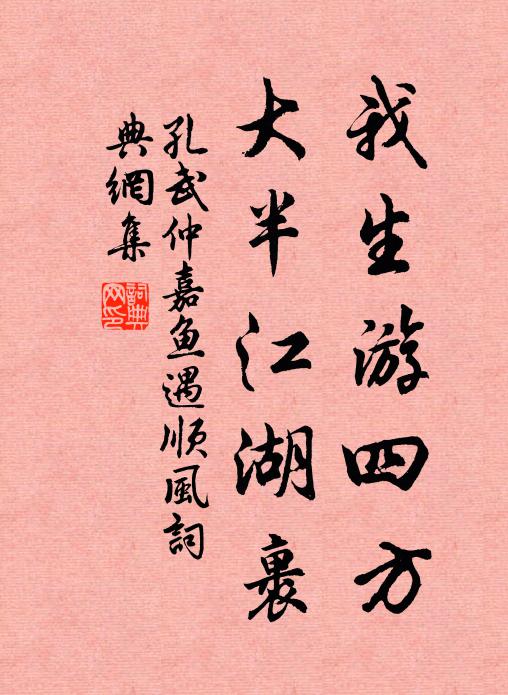 我生游四方
大半江湖裏
孔武仲嘉鱼遇顺風詞
典網集
詞典网印